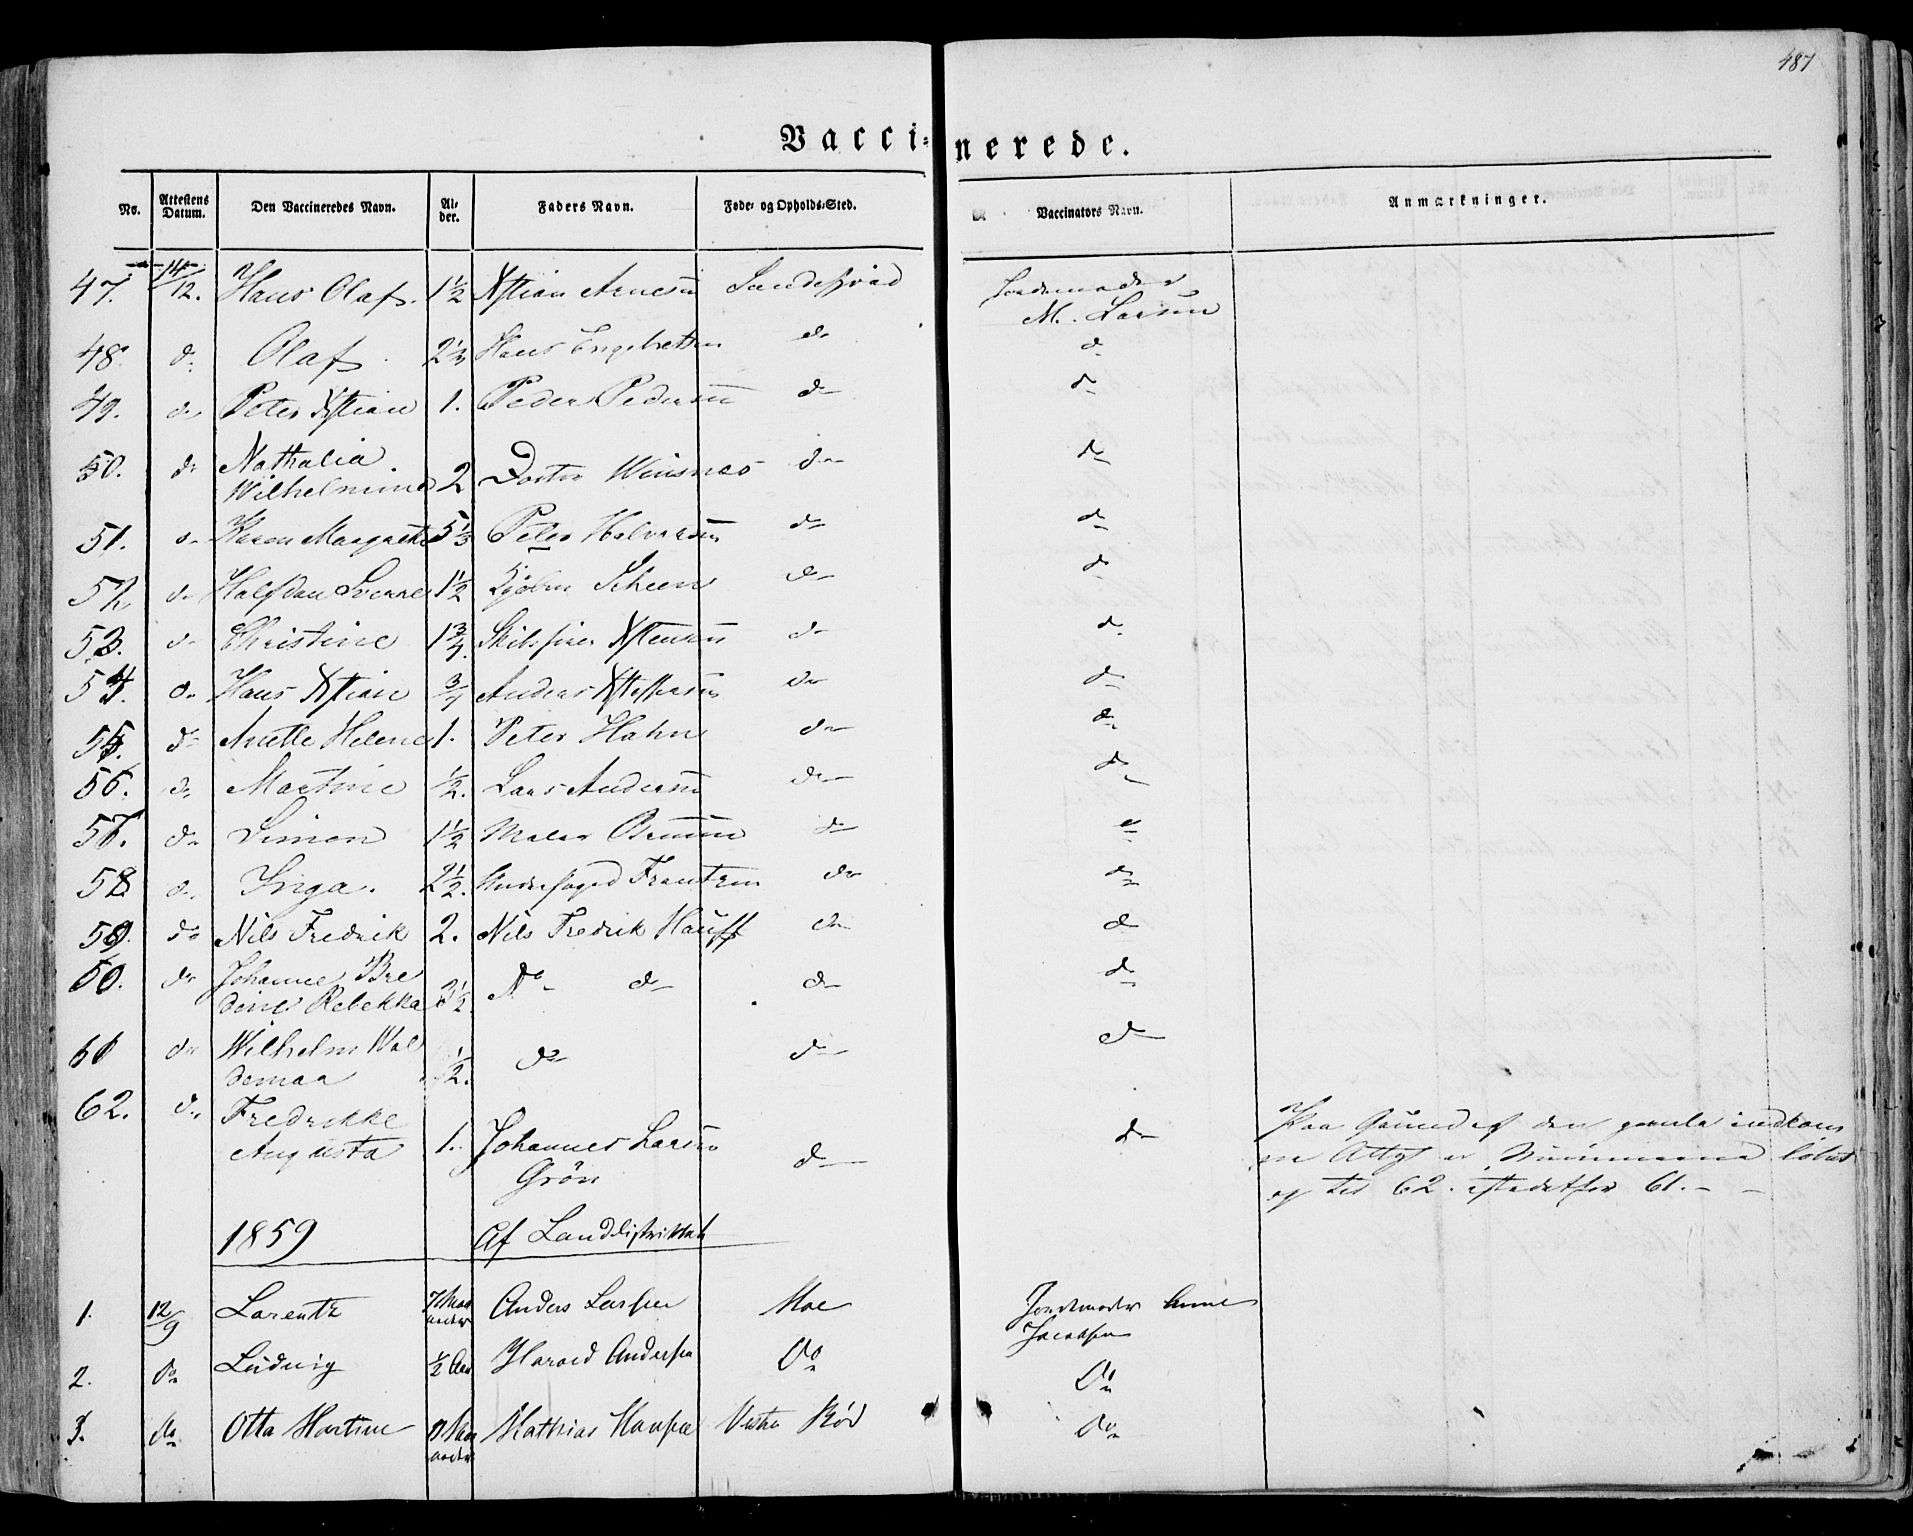 487
Vacci=nerede.
No. Attestens Datum. Den Vaccineredes Navn. Alder. Faders Navn. Føde- og Opholds-Sted. Vaccinators Navn. Anmærkninger.
47. 14/12. Hans Olaf. 1½ Xstian Arnesen Sandefjord Jordemoder
M. Larsen
48. do Olaf. Hans Engebretsen do do
49. do Peter Xstian 1. Peder Pedersen do do
50. do Nathalia
Wilhelmine 2 Doctor Winsnes do do
51. do Karen Margrethe 5⅓ Peter Halvorsen do do
52 do Halfdan Sverre 1½ Bjørn Scheen do do
53. do Christine 1¾. Skibsfører Xstensen do do
54. do Hans Xstian ¾ Andreas do do
55. do Anette Helene 1. Peter Hahn do do
56. do Martine ½. Lars Andersen do do
57. do Simon 1½ Maler do do
58 do Inga. 2½. Underfoged Frantzen do do
59. do Nils Fredrik 2. Nils Fredrik Hauff do do
60. do Johanne Bre
dine Rebekka 3½. do do do do
61 do Wilhelm Wal
demar ½. do do do
62. do Fredrikke
Augusta 1. Johannes Larsen
Grön do do Paa Grund af den gamle indkom
ne Attest er Nummerne
og til 62. istedetfor 61. - -
1859 Af Landdistriktet
1. 12/9 Lorentz 7 Maa
neder Anders Larsen Moe Jordemoder Anne
Jacobsen
2. Do Ludvig ½ Aar Harald Andersen Do Do
3. do Otto Martin Maa
neder Mathias Hansen Vestre Rød Do